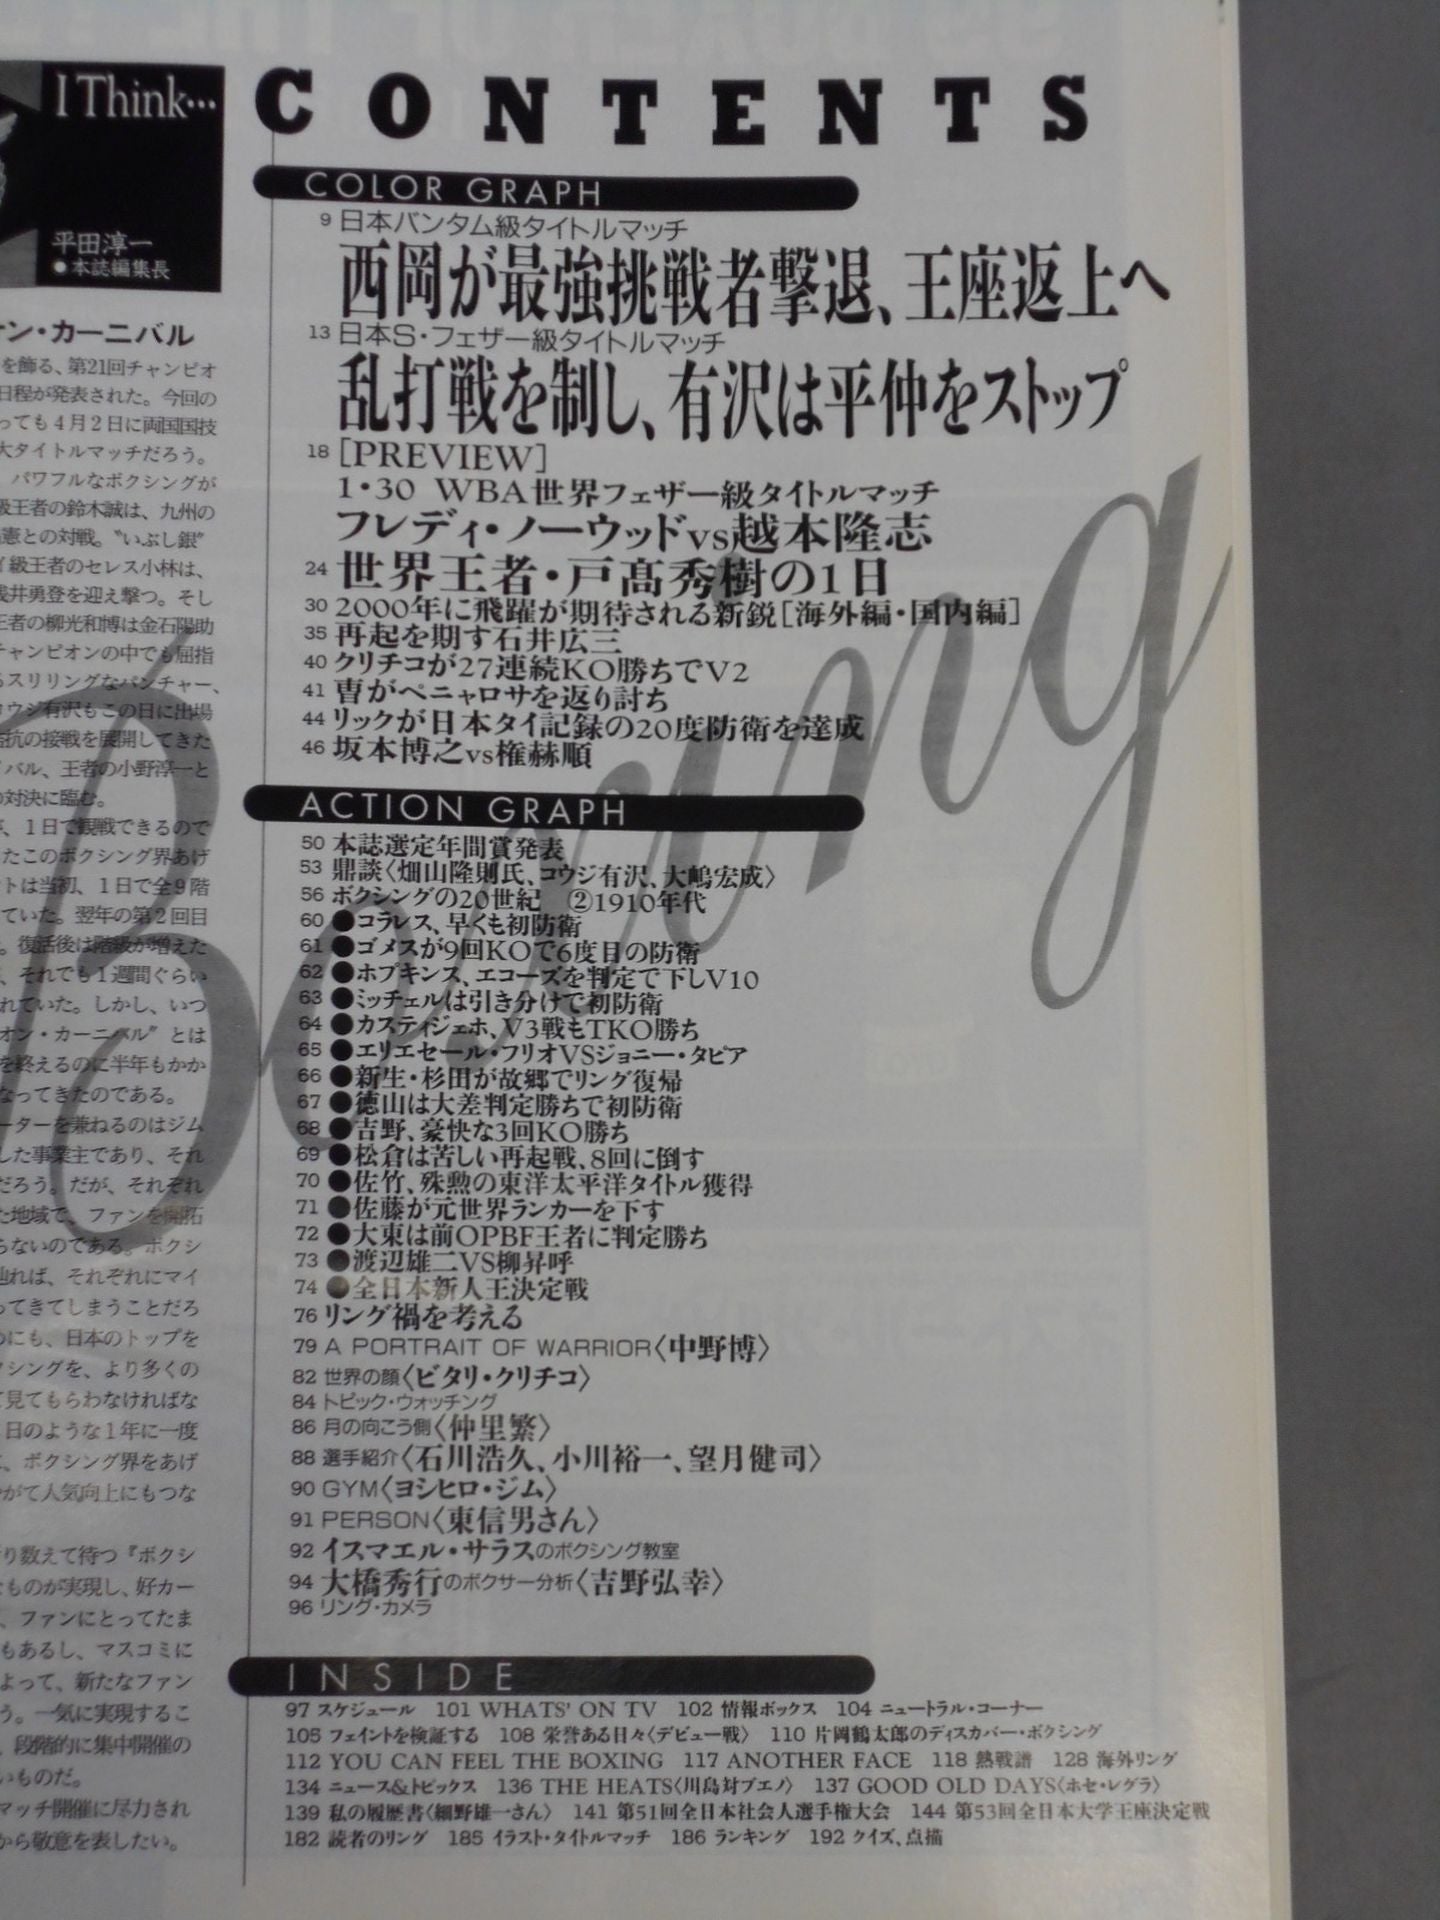 I Think…
平田淳一
●本誌編集長
ン・カーニバル
を飾る、第21回チャンピオ
日程が発表された。今回の
っても4月2日に両国国技
大タイトルマッチだろう。
パワフルなボクシングが
級王者の鈴木誠は、九州の
憲との対戦。〝いぶし銀〟
イ級王者のセレス小林は、
浅井勇登を迎え撃つ。そし
王者の柳光和博は金石陽助
チャンピオンの中でも屈指
るスリリングなパンチャー、
コウジ有沢もこの日に出場
拮抗の接戦を展開してきた
イバル、王者の小野淳一と
の対決に臨む。
、1日で観戦できるので
たこのボクシング界あげ
ントは当初、1日で全9階
ていた。翌年の第2回目
。復活後は階級が増えた
、それでも1週間ぐらい
れていた。しかし、いつ
オン・カーニバル〟とは
を終えるのに半年もかか
なってきたのである。
ーターを兼ねるのはジム
した事業主であり、それ
だろう。だが、それぞれ
た地域で、ファンを開拓
らないのである。ボクシ
れば、それぞれにマイ
ってきてしまうことだろ
めにも、日本のトップを
クシングを、より多くの
て見てもらわなければな
日のような1年に一度
、ボクシング界をあげ
がて人気向上にもつな
り数えて待つ『ボクシ
なものが実現し、好カー
、ファンにとってたま
もあるし、マスコミに
よって、新たなファン
う。一気に実現するこ
、段階的に集中開催の
いものだ。
マッチ開催に尽力され
から敬意を表したい。
CONTENTS
Boxing
COLOR GRAPH
9 日本バンタム級タイトルマッチ
西岡が最強挑戦者撃退、王座返上へ
13 日本S・フェザー級タイトルマッチ
乱打戦を制し、有沢は平仲をストップ
18 [PREVIEW]
1・30 WBA世界フェザー級タイトルマッチ
フレディ・ノーウッドvs越本隆志
24 世界王者・戸髙秀樹の1日
30 2000年に飛躍が期待される新鋭[海外編・国内編]
35 再起を期す石井広三
40 クリチコが27連続KO勝ちでV2
41 曺がペニャロサを返り討ち
44 リックが日本タイ記録の20度防衛を達成
46 坂本博之vs権赫順
ACTION GRAPH
50 本誌選定年間賞発表
53 鼎談〈畑山隆則氏、コウジ有沢、大嶋宏成〉
56 ボクシングの20世紀 ②1910年代
60 ●コラレス、早くも初防衛
61 ●ゴメスが9回KOで6度目の防衛
62 ●ホプキンス、エコーズを判定で下しV10
63 ●ミッチェルは引き分けで初防衛
64 ●カスティジェホ、V3戦もTKO勝ち
65 ●エリエセール・フリオVSジョニー・タピア
66 ●新生・杉田が故郷でリング復帰
67 ●徳山は大差判定勝ちで初防衛
68 ●吉野、豪快な3回KO勝ち
69 ●松倉は苦しい再起戦、8回に倒す
70 ●佐竹、殊勲の東洋太平洋タイトル獲得
71 ●佐藤が元世界ランカーを下す
72 ●大東は前OPBF王者に判定勝ち
73 ●渡辺雄二VS柳昇呼
74 ●全日本新人王決定戦
76 リング禍を考える
79 A PORTRAIT OF WARRIOR〈中野博〉
82 世界の顔〈ビタリ・クリチコ〉
84 トピック・ウォッチング
86 月の向こう側〈仲里繁〉
88 選手紹介〈石川浩久、小川裕一、望月健司〉
90 GYM〈ヨシヒロ・ジム〉
91 PERSON〈東信男さん〉
92 イスマエル・サラスのボクシング教室
94 大橋秀行のボクサー分析〈吉野弘幸〉
96 リング・カメラ
INSIDE
97 スケジュール 101 WHATS' ON TV 102 情報ボックス 104 ニュートラル・コーナー
105 フェイントを検証する 108 栄誉ある日々〈デビュー戦〉 110 片岡鶴太郎のディスカバー・ボクシング
112 YOU CAN FEEL THE BOXING 117 ANOTHER FACE 118 熱戦譜 128 海外リング
134 ニュース&トピックス 136 THE HEATS〈川島対ブエノ〉 137 GOOD OLD DAYS〈ホセ・レグラ〉
139 私の履歴書〈細野雄一さん〉 141 第51回全日本社会人選手権大会 144 第53回全日本大学王座決定戦
182 読者のリング 185 イラスト・タイトルマッチ 186 ランキング 192 クイズ、点描